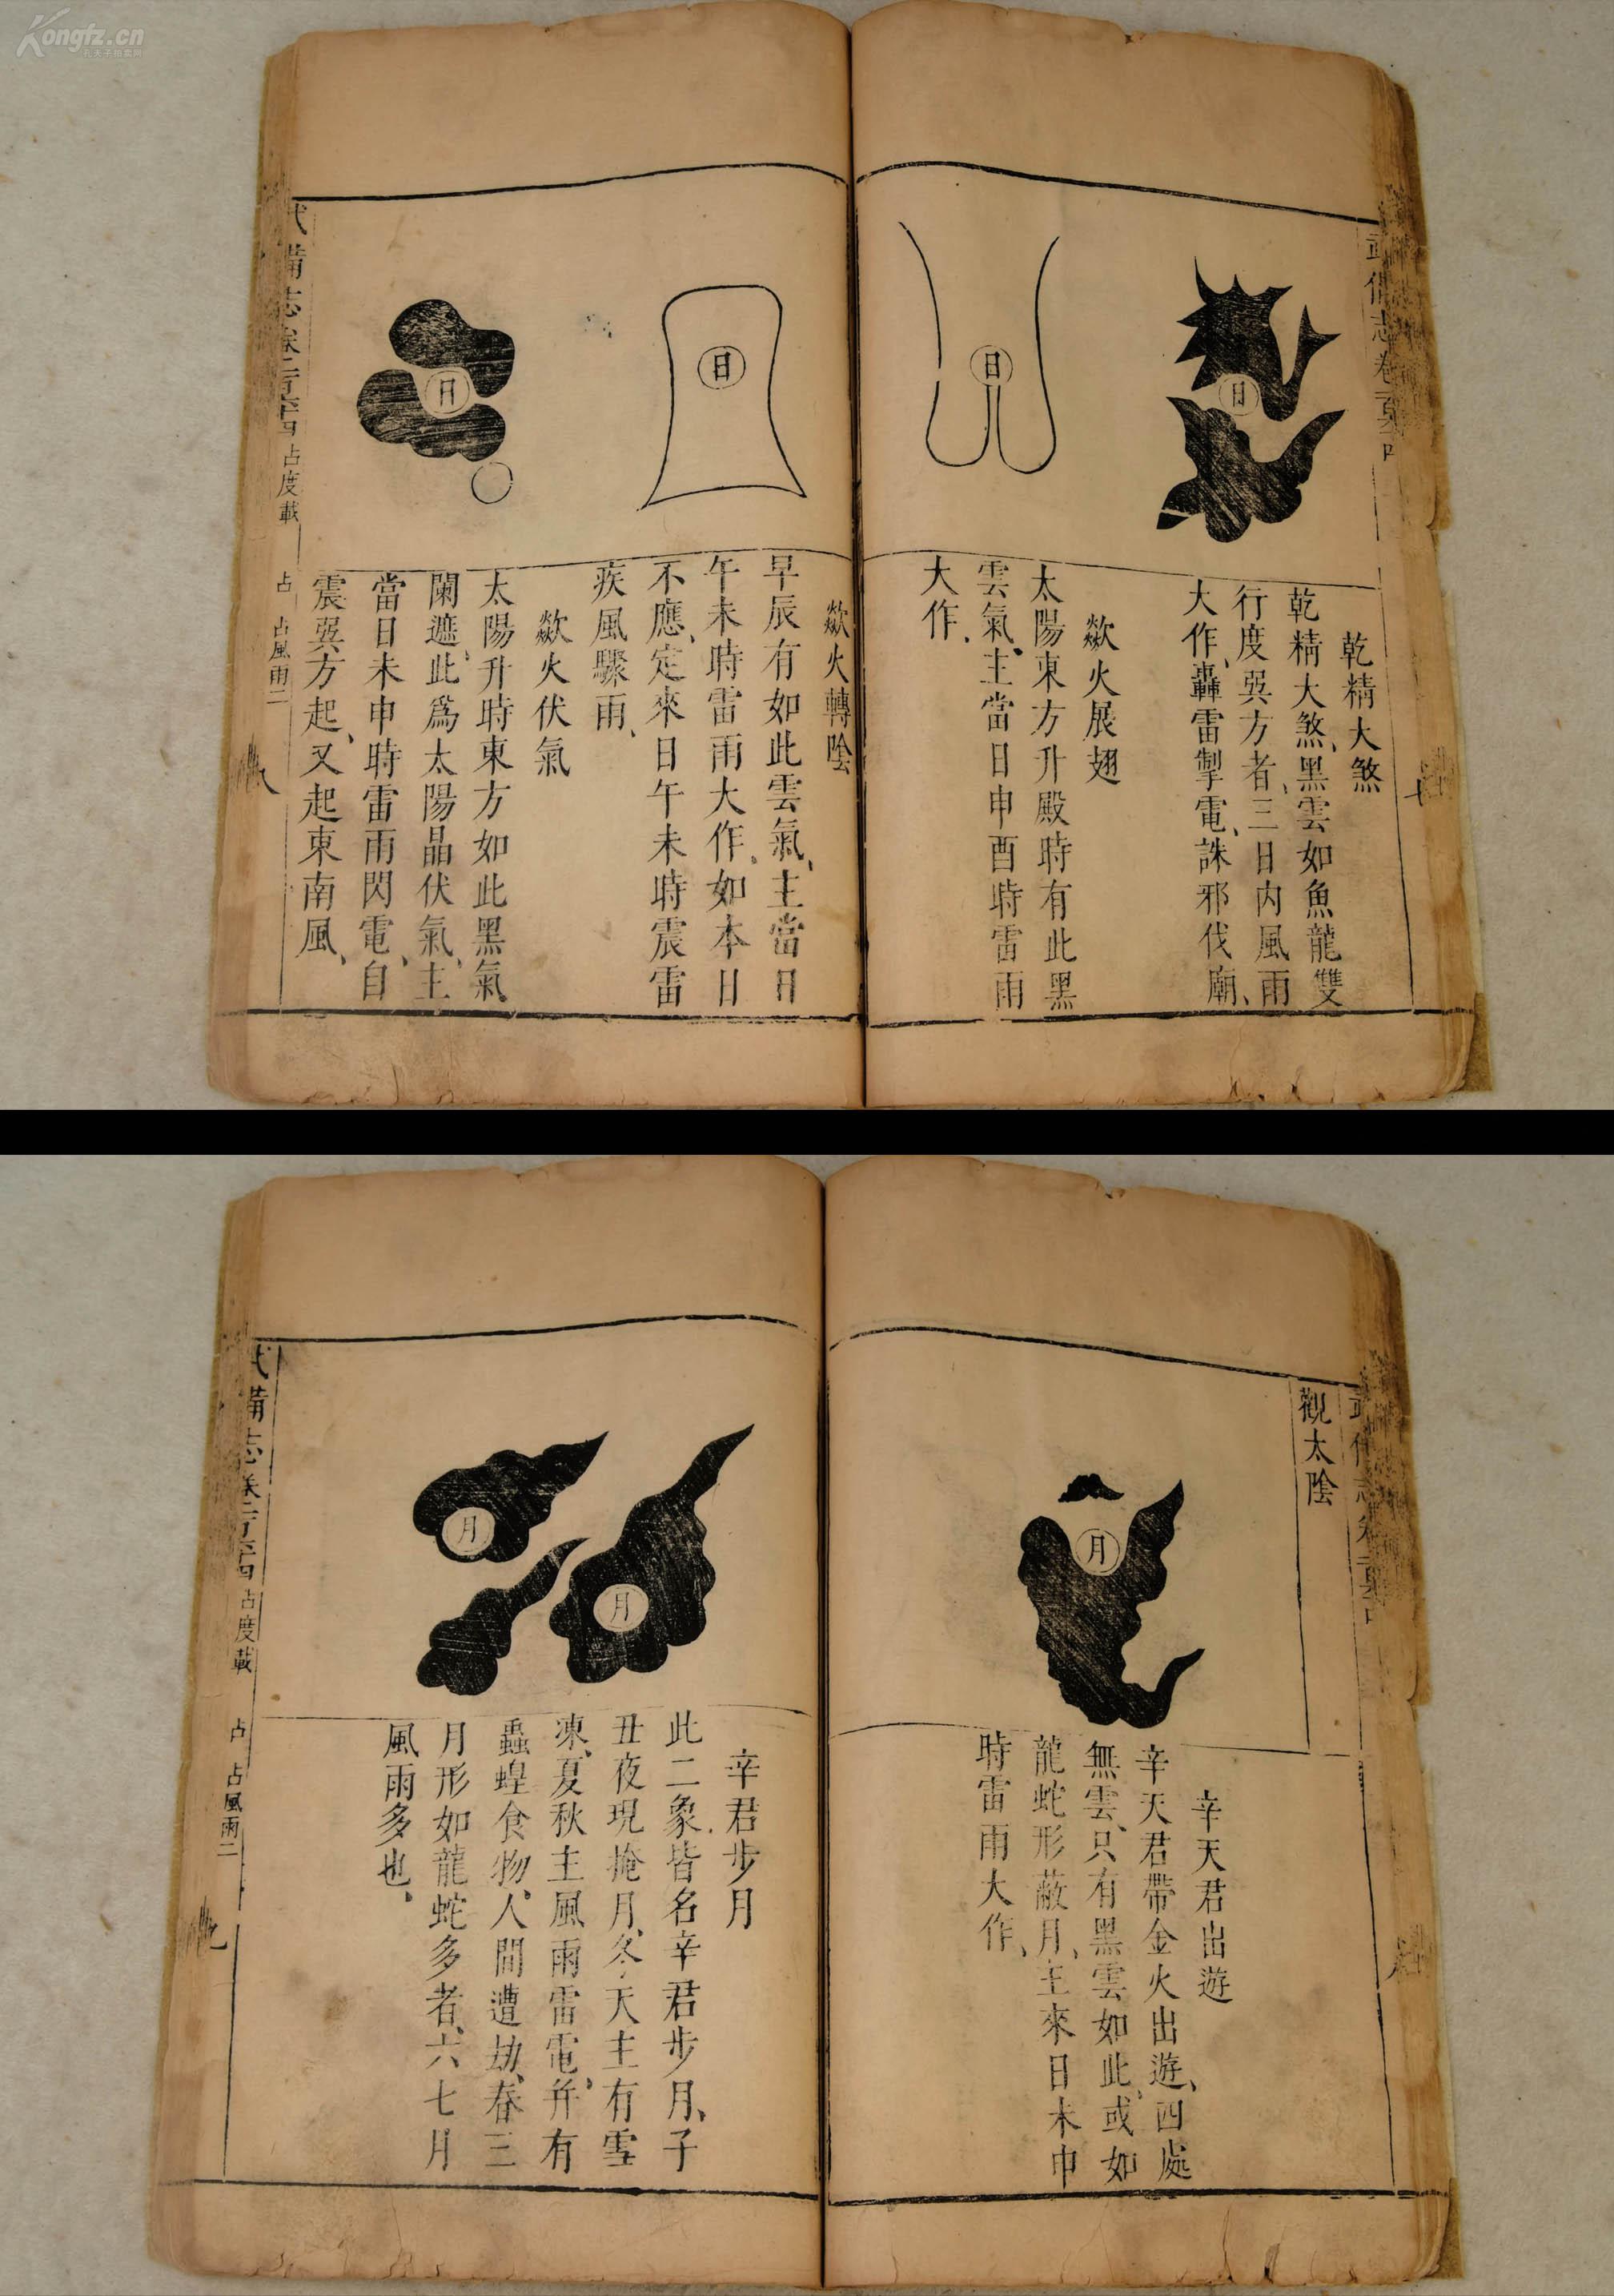 Kongfz.cn
乾精大煞
乾精大煞、黑雲如魚龍雙
行度巽方者、三日內風雨
大作、轟雷掣電、誅邪伐廟、
歘火展翅
太陽東方升殿時有此黑
雲氣、主當日申酉時雷雨
大作、
日
日
歘火轉陰
早辰有如此雲氣、主當日
午未時雷雨大作、如本日
不應、定來日午未時震雷
疾風驟雨、
歘火伏氣
太陽升時東方如此黑氣
闌遮、此爲太陽晶伏氣、主
當日未申時雷雨閃電、自
震巽方起、又起東南風、
日
日
武備志卷
占度載
占
占風雨二
八
觀太陰
辛天君出遊
辛天君帶金火出遊、四處
無雲、只有黑雲如此、或如
龍蛇形蔽月、主來日未申
時雷雨大作、
月
辛君步月
此二象皆名辛君步月、子
丑夜現掩月、冬天主有雪
凍、夏秋主風雨雷電、并有
蟲蝗食物、人間遭劫、春三
月形如龍蛇多者、六七月
風雨多也、
月
月
武備志卷
占度載
占
占風雨二
九